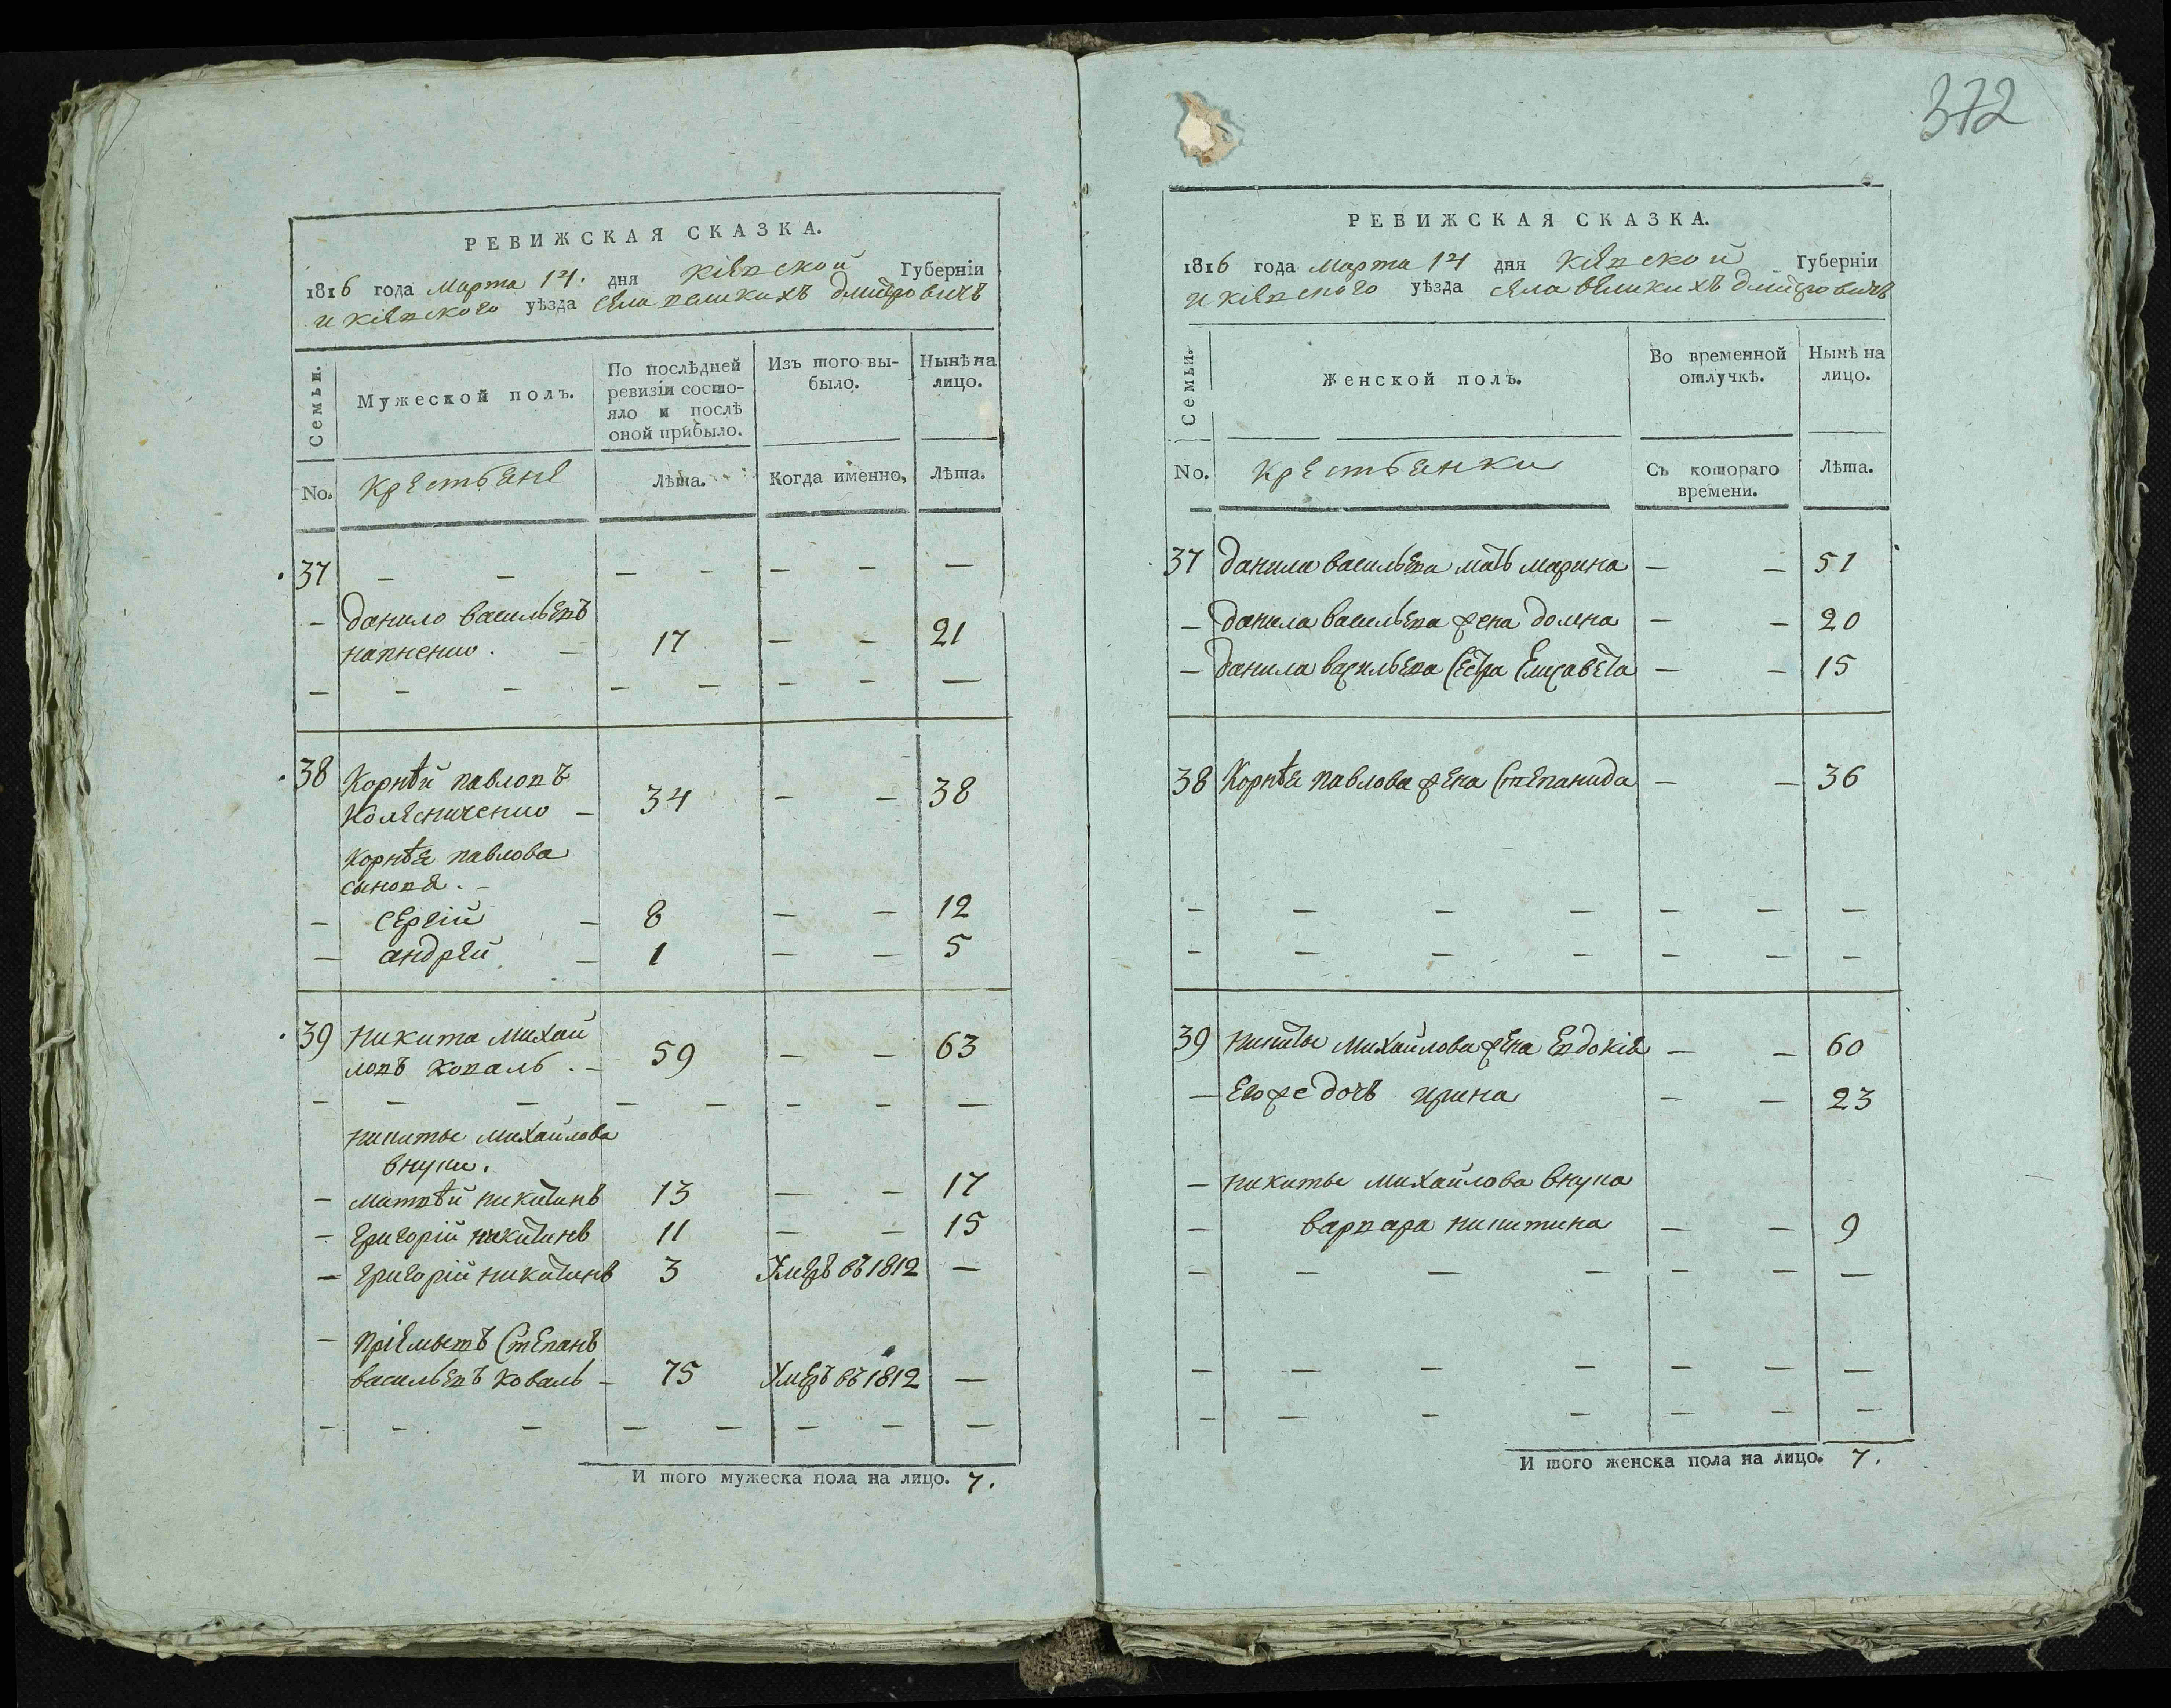 372
РЕВИЖСКАЯ СКАЗКА.
1816 года марта 14. дня Кіевской Губерніи
и Кіевского уѣзда села великихъ дмитровичъ
Семьи.
Мужеской полъ.
По послѣдней ревизіи состояло и послѣ оной прибыло.
Изъ того выбыло.
Нынѣ на лицо.
No.
Крестьяне
Лѣта.
Когда именно,
Лѣта.
37 – – – – – – —
– данило васильевъ
– 17 – – 21
– – – – – – – —
38 Корнѣй павловъ
Колесниченко – 34 – – 38
Корнѣя павлова
сыновя. –
– сергій – 8 – – 12
– андрей – 1 – – 5
39 никита михай
ловъ коваль . – 59 – – 63
– – – – – – – —
никиты михайлова
внуки.
– матвѣй никитинъ 13 – – 17
– григорій никитинъ 11 – – 15
– григорій никитинъ 3 Умеръ въ 1812 —
– пріемышъ Степанъ
васильевъ коваль – 75 Умеръ въ 1812 —
– – – – – – – —
И того мужеска пола на лицо. 7.
РЕВИЖСКАЯ СКАЗКА.
1816 года марта 14 дня Кіевской Губерніи
и кіевского уѣзда села великихъ дмитровичъ
Семьи.
Женской полъ.
Во временной отлучкѣ.
Нынѣ на лицо.
No.
Крестьянки
Съ котораго времени.
Лѣта.
37 данила васильева мать марина – – 51
– данила васильева жена домна – – 20
– данила васильева сестра Елисавета – – 15
38 Корнѣя павлова жена Степанида – – 36
– – – – – – —
– – – – – – —
39 никиты михайлова жена Евдокія – – 60
– Его же дочь ирина – – 23
– никиты михайлова внука
– варвара никитина – – 9
– – – – – – —
– – – – – – —
– – – – – – —
И того женска пола на лицо. 7.